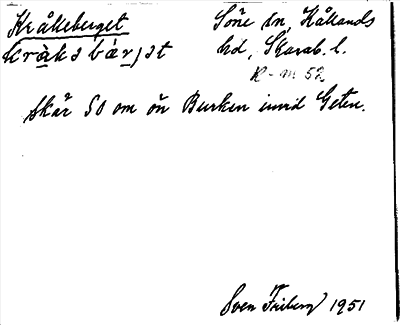 Kråkeberget
kràkəbæ̀rjət
Söne sn, Kållands
hd, Skarab. l.
R-m 52
Skär SO om ön Burken invid Geten.
Sven Friberg 1951